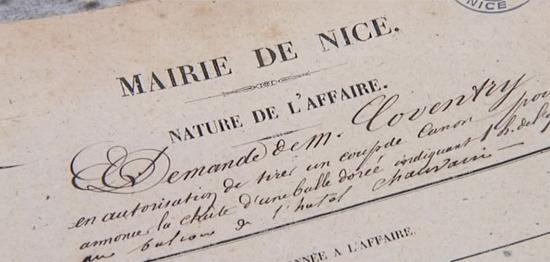 NICE
MAIRIE DE NICE.
NATURE DE L'AFFAIRE.
Demande de M. Coventry
en autorisation de tirer un coup de canon pour
annoncer la chute d'une balle dorée indiquant 1 h. de
au balcon de l'hotel Chauvain
NNÉE A L'AFFAIRE.